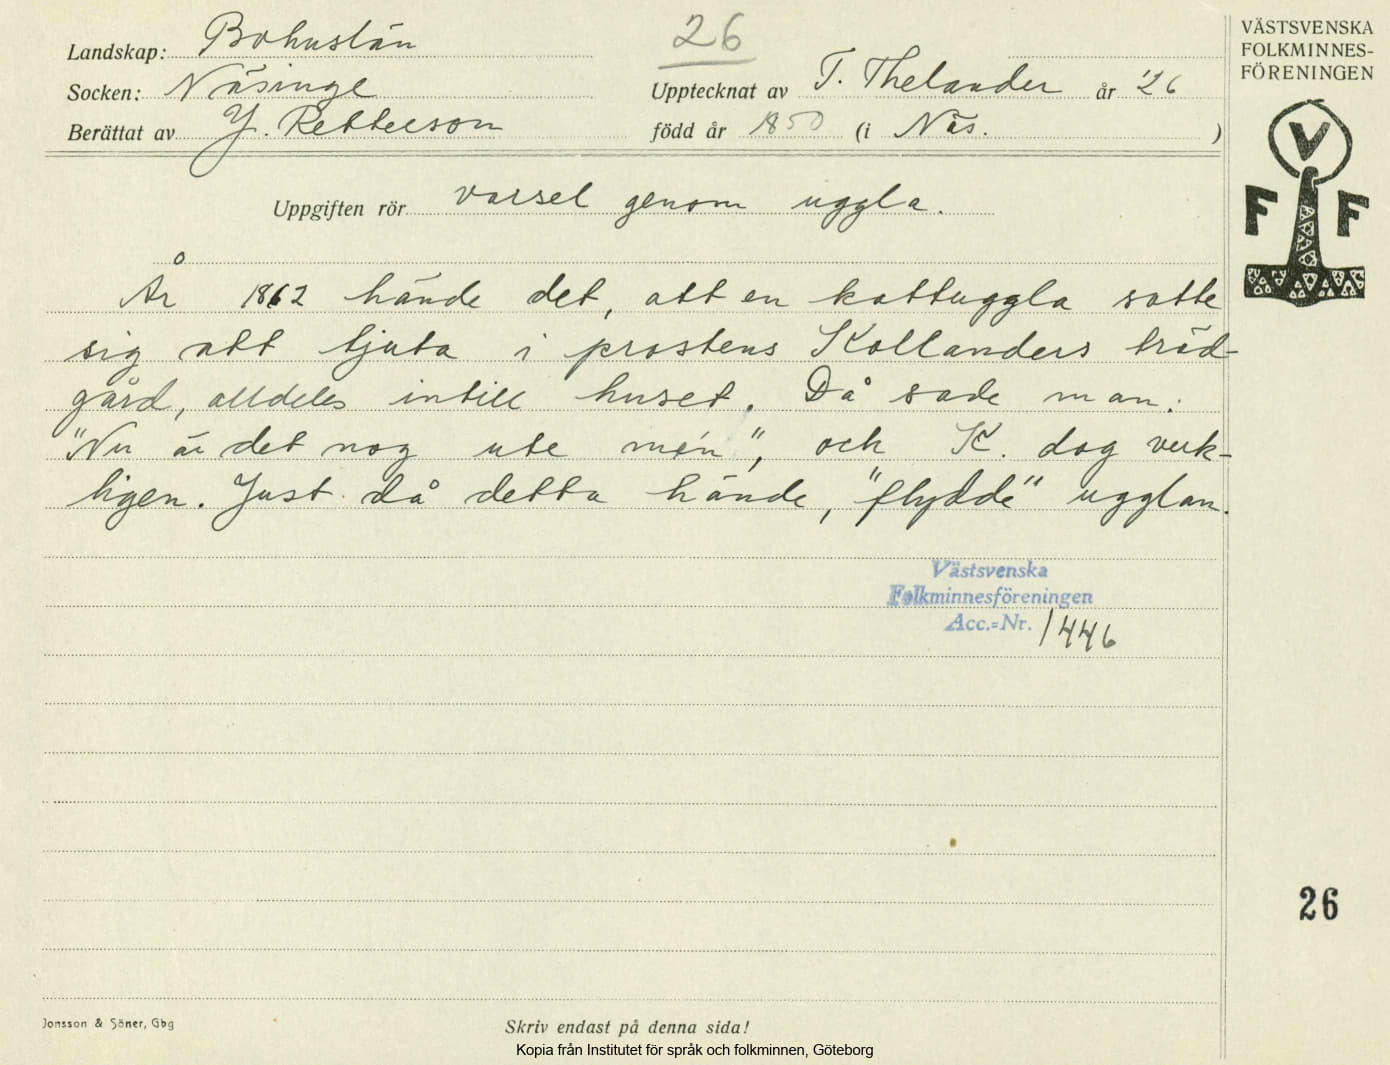 Landskap: Bohuslän
26
Socken: Näsinge
Upptecknat av T. Thelander år '26
Berättat av Y. Pettersson
född år 1850 (i Näs. )
VÄSTSVENSKA
FOLKMINNES-
FÖRENINGEN
V
F F
Uppgiften rör varsel genom uggla.
År 1862 hände det, att en kattuggla satte
sig att tjuta i prostens Kollanders träd-
gård, alldeles intill huset. Då sade man:
"Nu är det nog ute mén", och K. dog verk-
ligen. Just då detta hände, "flydde" ugglan.
Västsvenska
Folkminnesföreningen
Acc.-Nr. 1446
26
Jonsson & Söner, Gbg
Skriv endast på denna sida!
Kopia från Institutet för språk och folkminnen, Göteborg